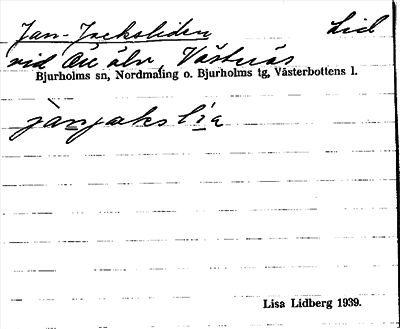 Jan-Jacksliden Lid
vid Öre älv, Västerås
Bjurholms sn, Nordmaling o. Bjurholms tg, Västerbottens l.
jànjaksli̱a
Lisa Lidberg 1939.